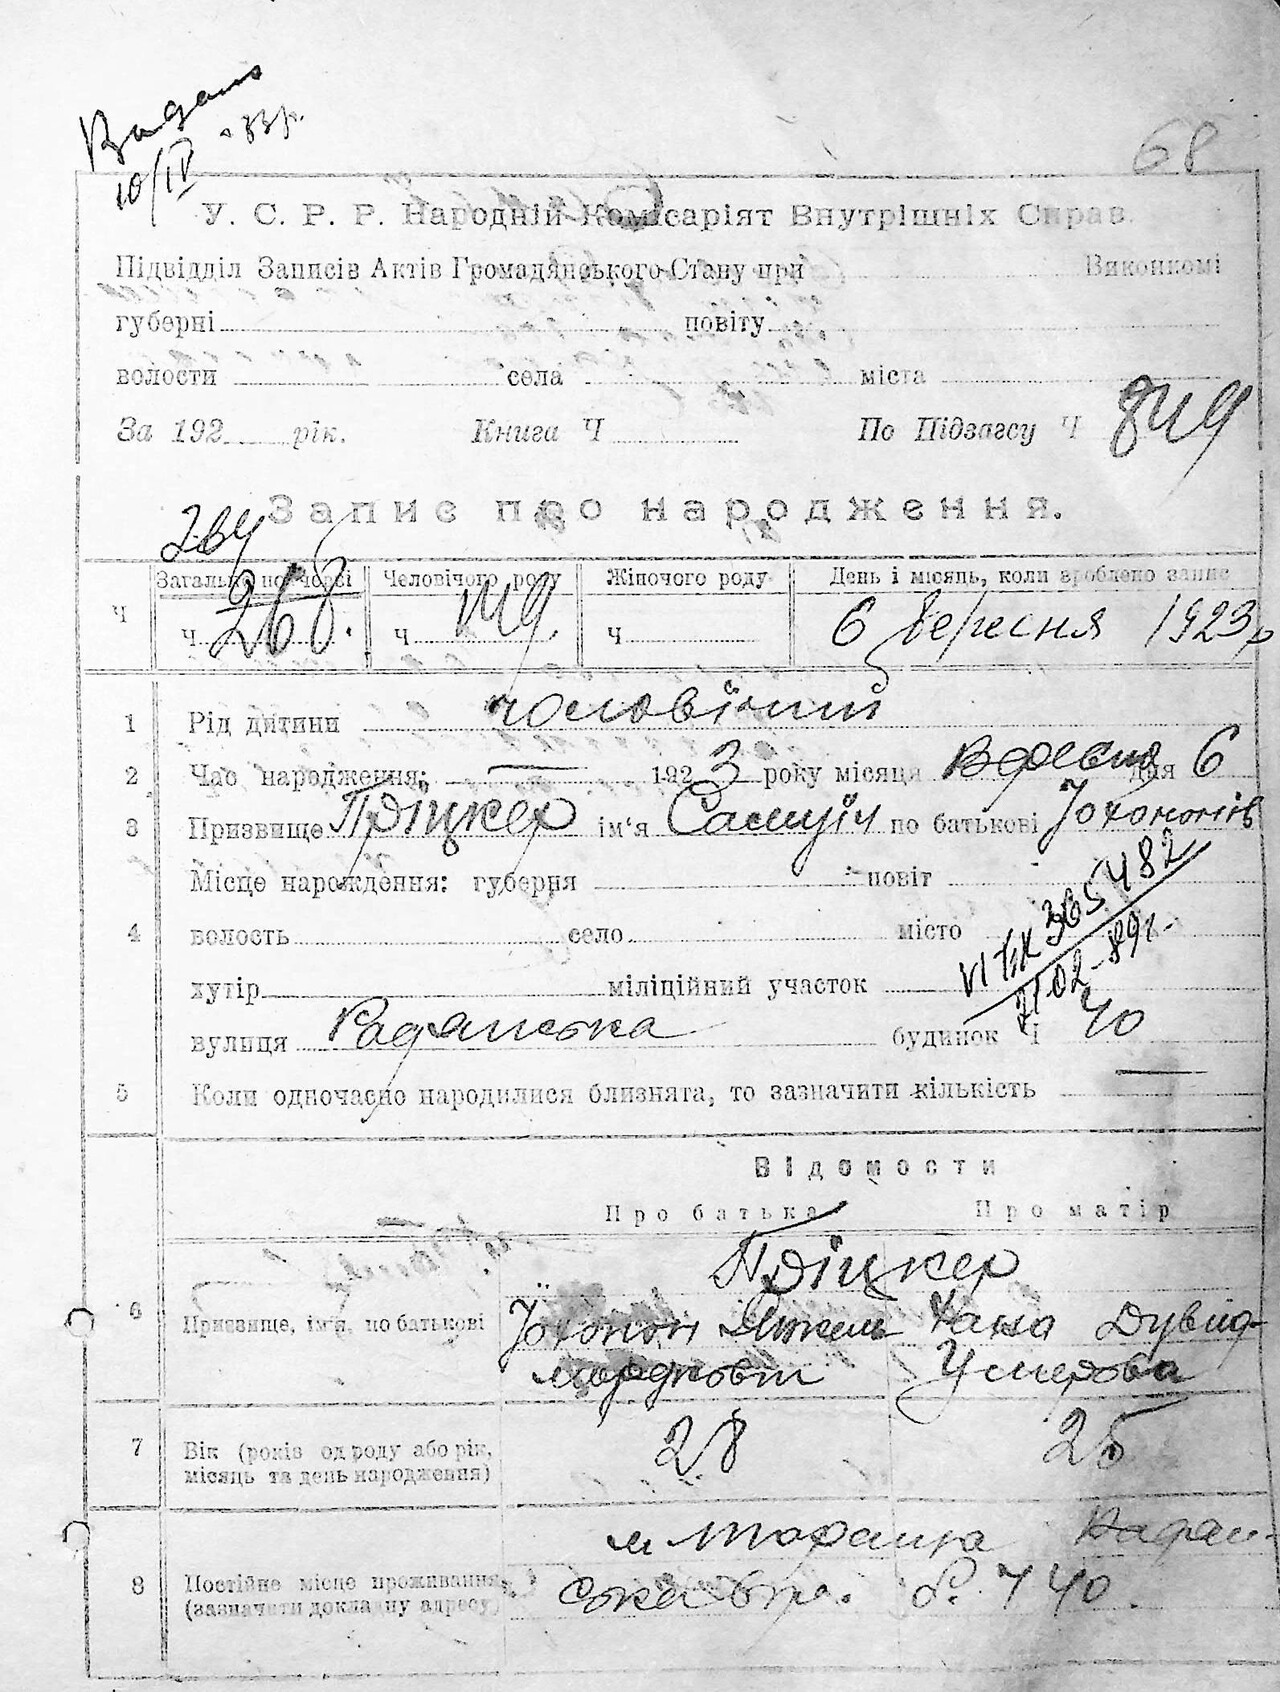 10/IV
68
У. С. Р. Р. Народній Комісаріят Внутрішніх Справ.
Підвідділ Записів Актів Громадянського Стану при Виконкомі
губерні повіту
волости села міста
За 192 рік. Книга Ч По Підзагсу Ч 849
Запис про народження.
264
Загальне по черзі Человічого роду Жіночого роду День і місяць, коли зроблено запис
Ч Ч 268. Ч 149 Ч 6 вересня 1923 р
1 Рід дитини чоловічий
2 Час народження: — 1923 року місяця Вересня дня 6
3 Призвище Пріцкер ім'я Самуїл по батькові Іохононів
Місце нарождення: губерня повіт
4 волость село місто
VI БК 365482
хутір міліційний участок
21.02-89г.
вулиця Радянська будинок Ч 40
5 Коли одночасно народилися близнята, то зазначити кількість —
Відомости
Про батька Про матір
Пріцкер
6 Призвище, ім'я, по батькові Іохонон Хана Дувид-
Умерова
7 Вік (років од роду або рік, місяць та день народження) 28 25
м Тараща Радян-
8 Постійне місце проживання (зазначити докладну адресу) ська вул. б. Ч 40.